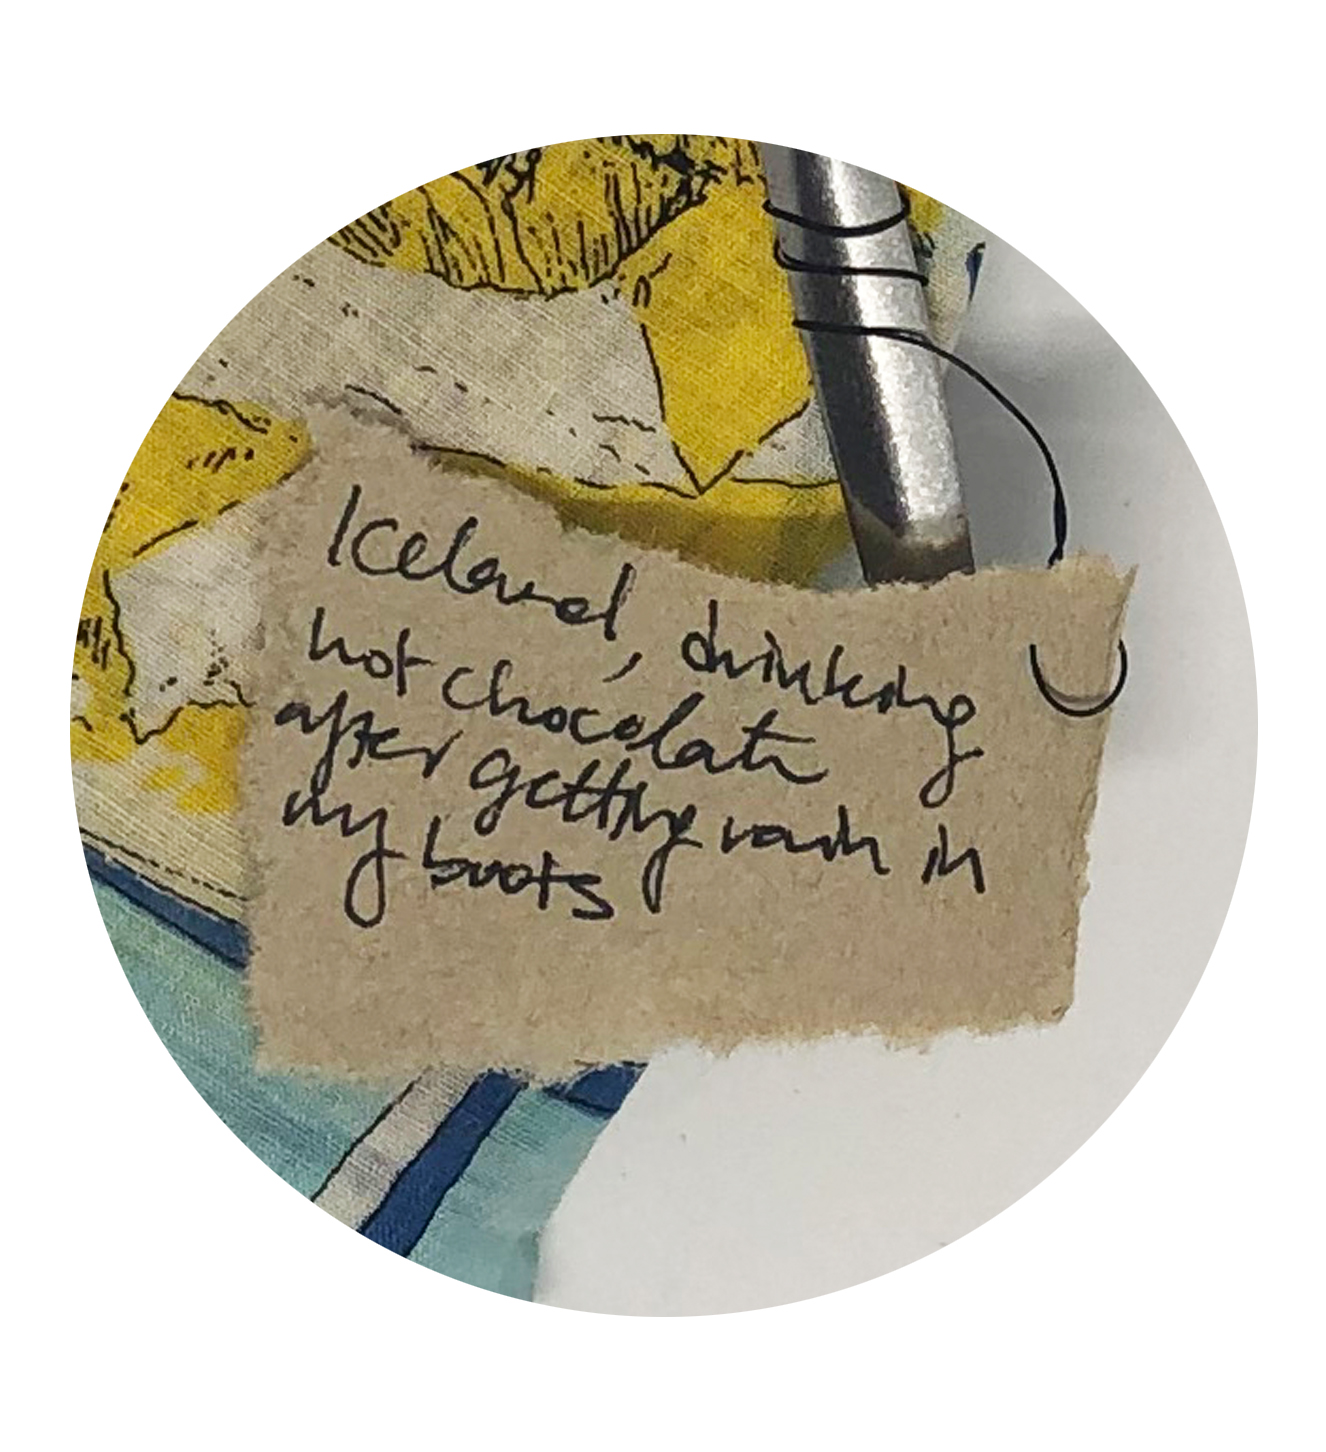 Iceland, drinking
hot chocolate
after getting rain in
my boots